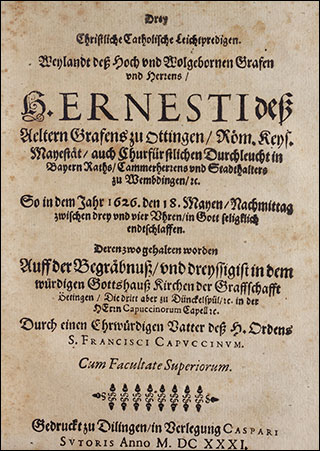 Drey
Christliche Catholische Leichtpredigen.
Weylandt deß Hoch vnd Wolgebornen Grafen
vnd Herrens /
H. ERNESTI deß
Aeltern Grafens zu Ottingen / Röm. Keys.
Mayestät / auch Churfürstlichen Durchleucht in
Bayern Raths / Cammerherrens vnd Stadthalters
zu Wembdingen / ꝛc.
So in dem Jahr 1626. den 18. Mayen / Nachmittag
zwischen drey vnd vier Vhren / in Gott seligklich
endtschlaffen.
Deren zwo gehalten worden
Auff der Begräbnuß / vnd dreyssigist in dem
würdigen Gottshauß Kirchen der Graffschafft
Oetingen / Die dritt aber zu Dünckelspül / ꝛc. in der
HErrn Capuccinorum Capell ꝛc.
Durch einen Ehrwürdigen Vatter deß H. Ordens
S. FRANCISCI CAPVCCINVM.
Cum Facultate Superiorum.
Gedruckt zu Dilingen / in Verlegung CASPARI
SVTORIS Anno M. DC XXXI.